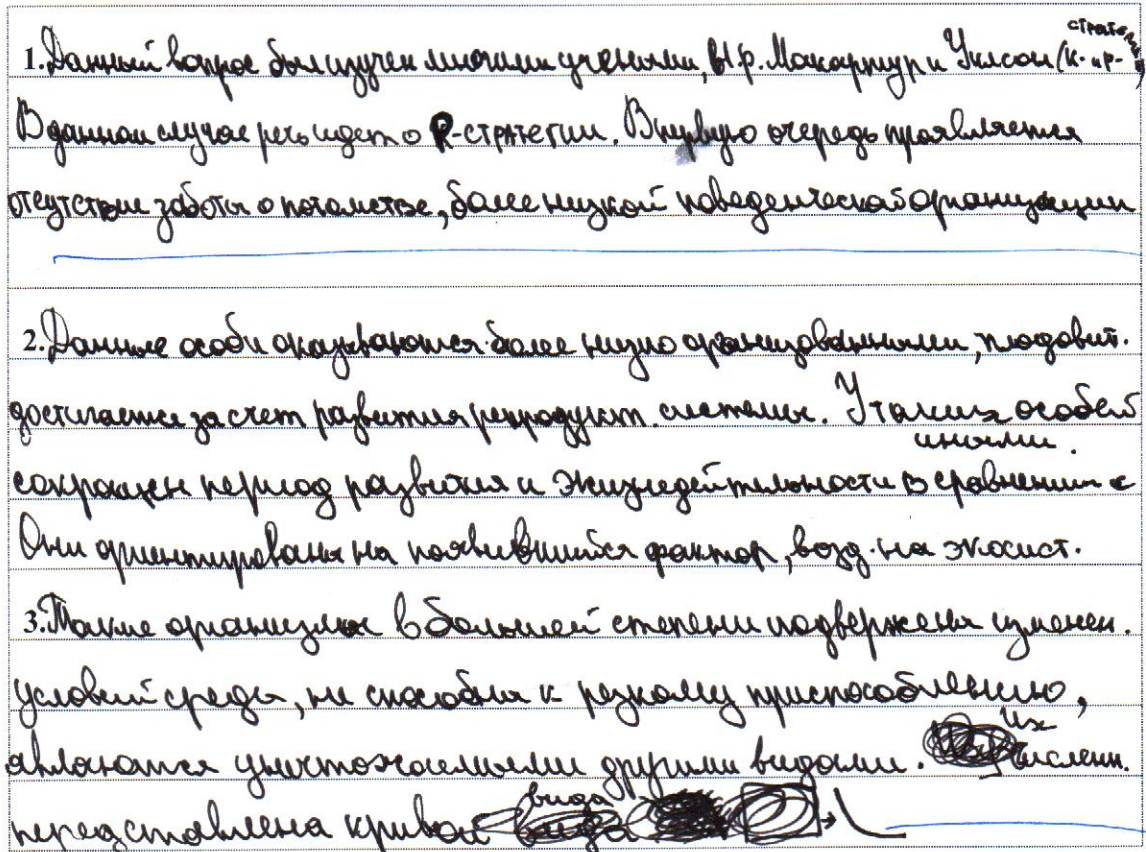 1. Данный вопрос был изучен многими учеными, в т.ч. Макартур и Уилсон (K- и r- стратегии)
В данном случае речь идет о R-стратегии. В первую очередь проявляется
отсутствие заботы о потомстве, более низкой поведенческой организации
2. Данные особи оказываются более низко организованными, плодовит.
достигается за счет развития репродукт. системы. У таких особей
сокращен период развития и жизнедеятельности в сравнении с иными.
Они ориентированы на появившийся фактор, возд. на экосист.
3. Такие организмы в большей степени подвержены изменен.
условий среды, не способны к резкому приспособлению,
являются уничтожаемыми другими видами. Их числен.
передставлена кривой вида →